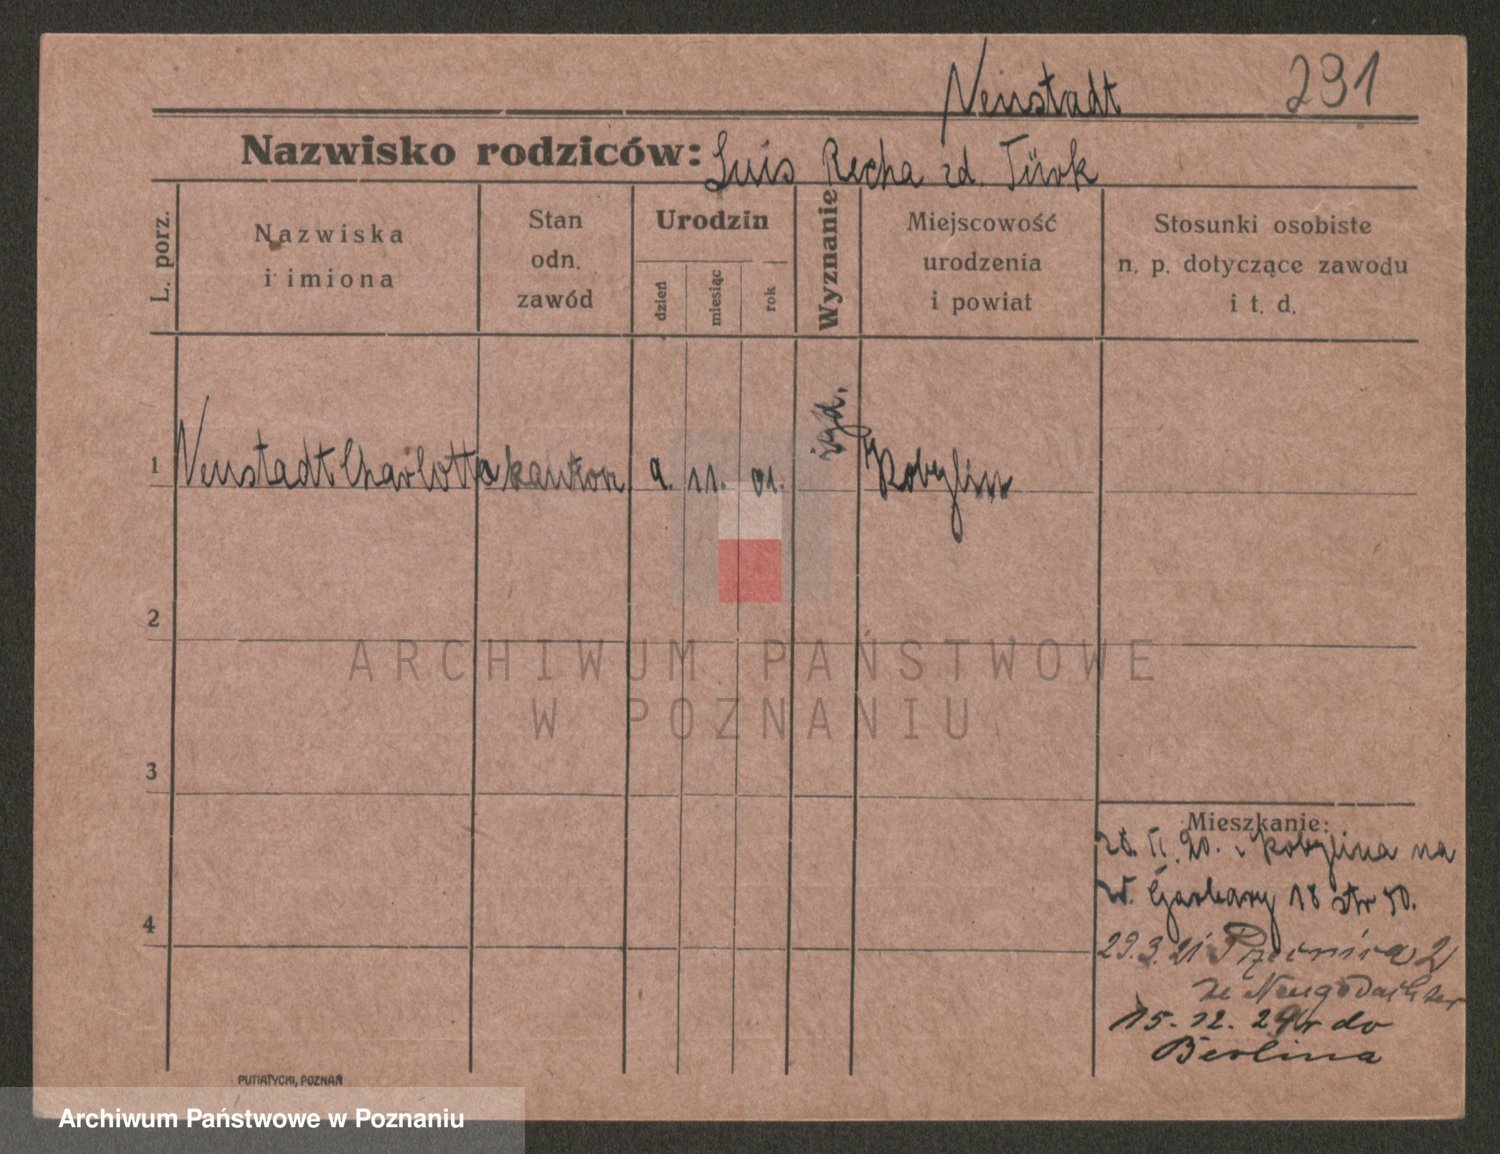 Neustadt
291
Nazwisko rodziców: Luis Recha zd. Türk
L. porz.
Nazwiska
i imiona
Stan
odn.
zawód
Urodzin
dzień
miesiąc
rok
Wyznanie
Miejscowość
urodzenia
i powiat
Stosunki osobiste
n. p. dotyczące zawodu
i t. d.
1 Neustadt Charlotta kantor. 9. 11. 01. żyd. Kobylin
2
ARCHIWUM PAŃSTWOWE
W POZNANIU
3
4
Mieszkanie:
Kobylina na
W. Garbary 18 str 50.
23.3.21 2
15.12. do
Berlina
PUTIATYCKI, POZNAŃ
Archiwum Państwowe w Poznaniu